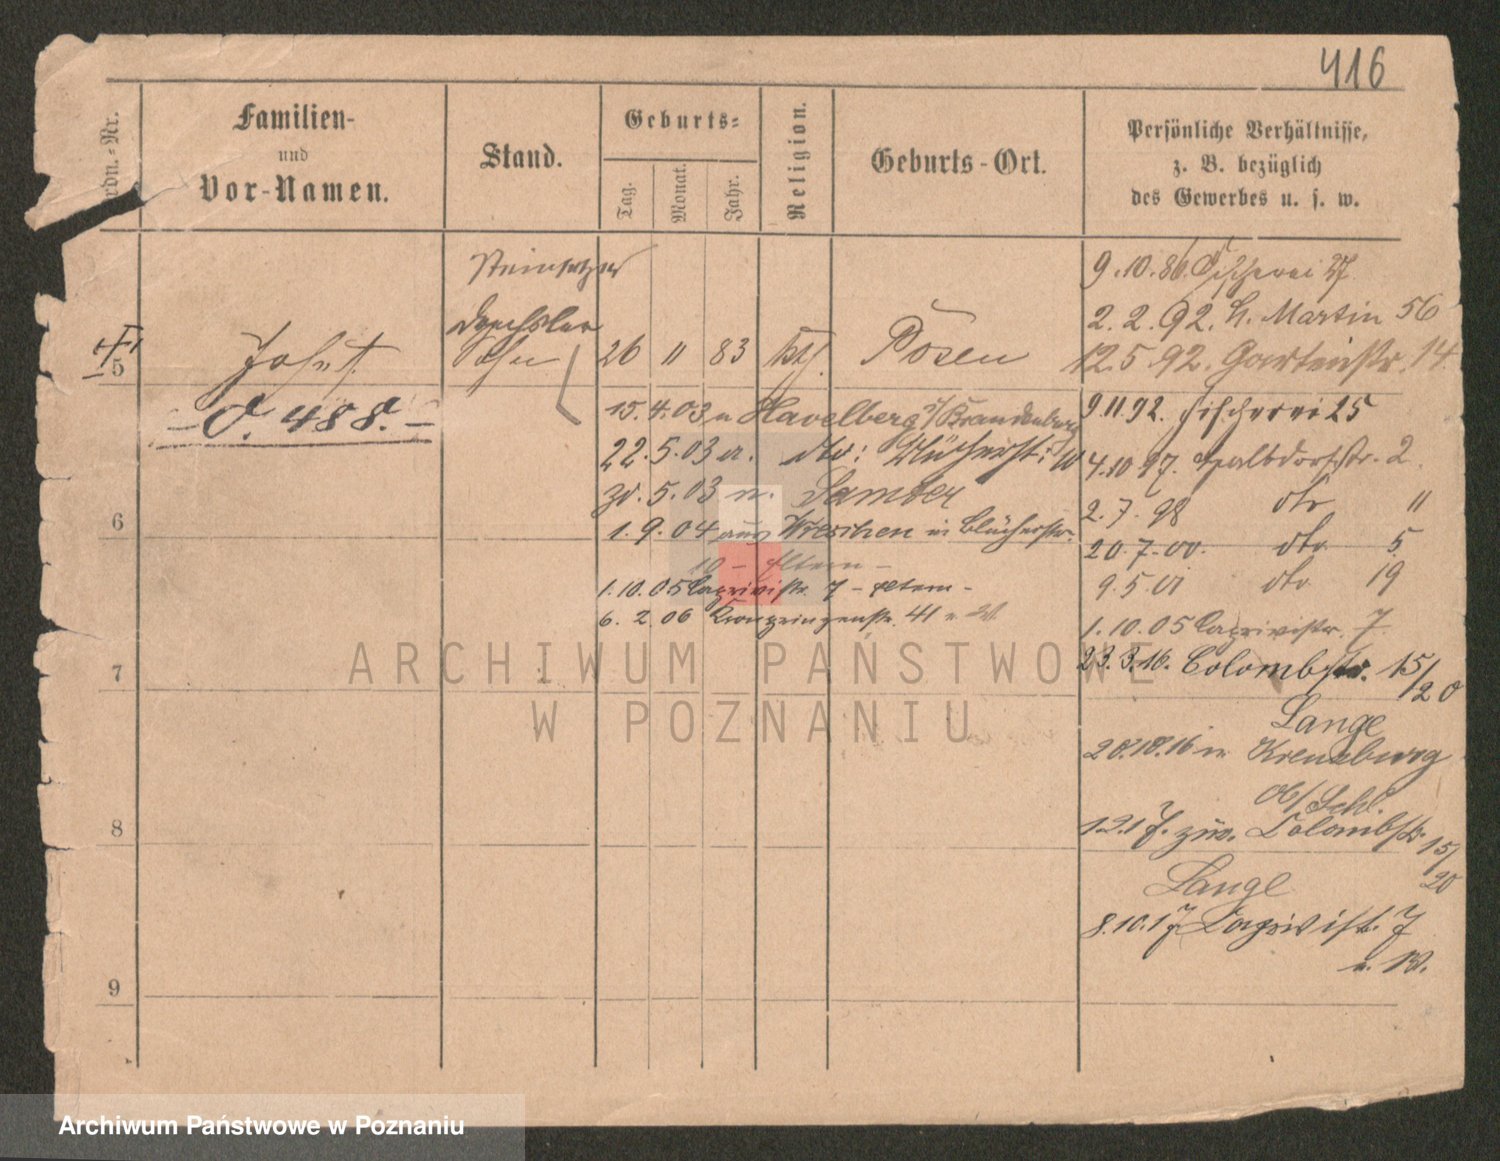 416
Ordn.-Nr.
Familien-
und
Vor-Namen.
Stand.
Geburts-
Tag.
Monat.
Jahr.
Religion.
Geburts-Ort.
Persönliche Verhältnisse,
z. B. bezüglich
des Gewerbes u. s. w.
Steinsetzer
Drechsler
5
26 11 83 kth. Posen
- O. 488. -
15.4.03 n Havelberg i/Brandenburg
22.5.03 a. dto: Blücherst: 10
5.03 n. Samter
1.9.04 aus Wreschen in Blücherstr.
10 - Eltern -
1.10.05 Caprivistr. 7 - Eltern -
6. 2. 06 Kronprinzenstr. 41 v. W.
9.10.86. Fischerei 27
2.2.92. St. Martin 56
12.5.92. Gartenstr. 14.
9.11.92. Fischerei 25
4.10.97. Halbdorfstr. 2
2.7.98 dto 11
20.7.00. dto 5
9.5.01 dto 19
1.10.05 Caprivistr. 7
23.3.16. Colombstr. 15/20
Lange
28.10.16 n Kreuzburg
Ob/Schl.
12.17. zur. Colombstr. 15/20
Lange
8.10.17 Caprivist. 7
v. W.
6
7
8
9
ARCHIWUM PAŃSTWOWE
W POZNANIU
Archiwum Państwowe w Poznaniu